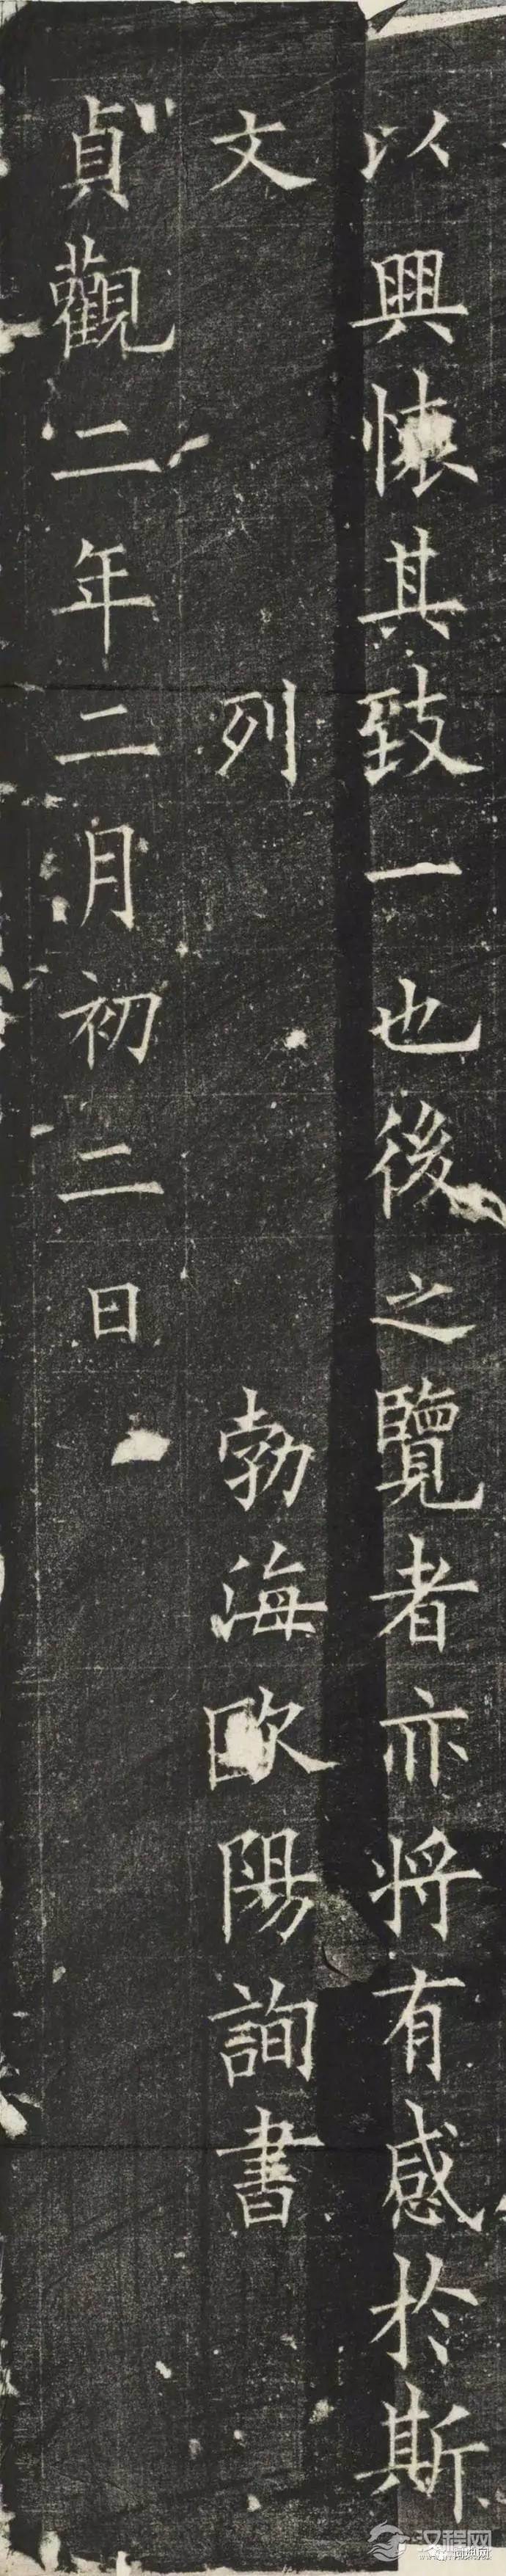 以興懷其致一也後之覽者亦將有感於斯
文 列 勃海歐陽詢書
貞觀二年二月初二日
汉程网